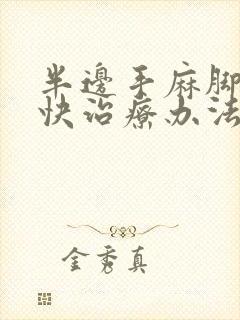 半邊手麻腳
快治療办法
金秀真